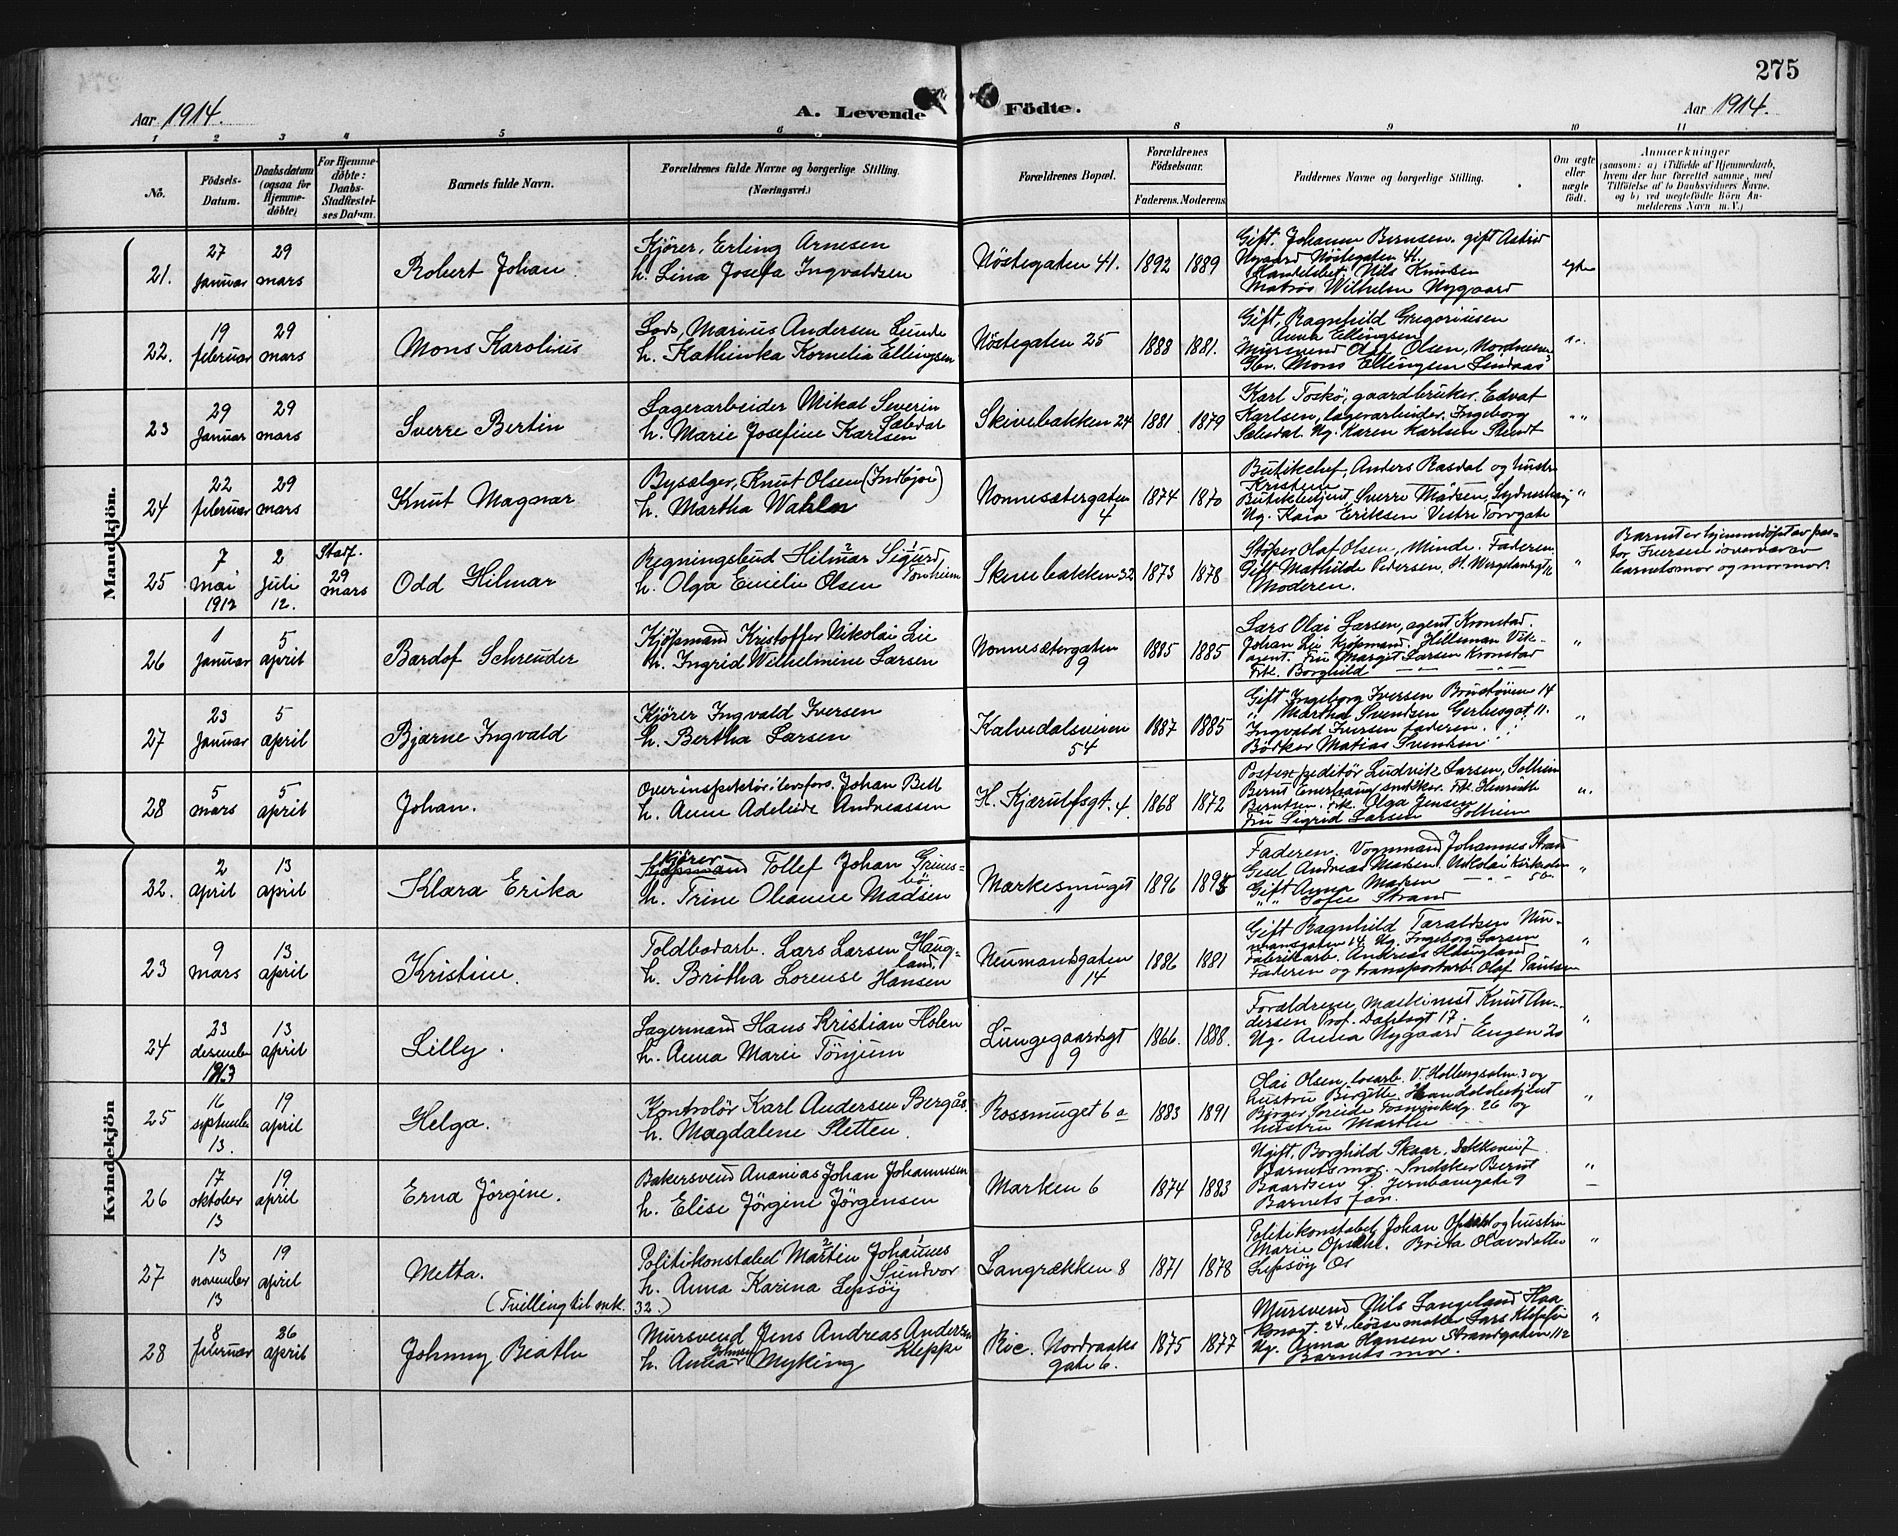 275
Aar 1914. A. Levende Födte. Aar 1914.
1 2 3 4 5 6 8 9 10 11
No.
Födsels-
Datum.
Daabsdatum
(ogsaa for
Hjemme-
döbte)
For Hjemme-
döbte:
Daabs-
Stadfæstel-
ses Datum.
Barnets fulde Navn.
Forældrenes fulde Navne og borgerlige Stilling.
(Næringsvei.)
Forældrenes Bopæl.
Forældrenes
Födselsaar.
Faderens. Moderens.
Faddernes Navne og borgerlige Stilling.
Om ægte
eller
uægte
födt.
Anmærkninger
(saasom: a) i Tilfælde af Hjemmedaab,
hvem der har forrettet samme, med
Tilföielse af to Daabsvidners Navne.
og b) ved uægtefödte Börn An-
melderens Navn m. V.)
Mandkjön.
21.
27
januar
29
mars
Robert Johan
Kjörer, Erling Arnesen
h. Lina Josefa Ingvaldsen
Nöstegaten 41.
1892 1889
Gift. Johanne Bernsen. gift Astrid
Nygaard Nöstegaten 41.
Nils Knudsen
Matros Wilhelm Nygaard
egte
22.
19
februar
29
mars
Mons Karolius
Lods, Marius Andersen Lunde
h. Kathinka Kornelia Ellingsen
Nöstegaten 25
1888 1881.
Gift, Ragnhild Gregoriusen
Anna Ellingsen
Mursvend Olaf Olsen, Nordnesvn
Gbr. Mons Ellingsen Lindaas
23
29
januar
29
mars
Sverre Bertin
Lagerarbeider Mikal Severin
Sælsdal
h. Marie Josefine Karlsen
Skivebakken 24
1881 1879
Karl Toskö, gaardbruker. Edvat
Karlsen, lagerarbeider. Ingeborg
Sælsdal. Ug. Karen Karlsen
"
24
22
februar
29
mars
Knut Magnar
Bysælger, Knut Olsen (Indbjoe)
h. Martha Wahln
Nonnesætergaten
4
1874 1870
Butikchef, Anders Rasdal og hustru
Kristine
Butikbetjent, Sverre Madsen, Sydneskleiv
Ug. Kaia Eriksen Vestre Torvgate
"
25
7
mai
1912
2
juli
12.
Stadf.
29
mars
Odd Hilmar
Regningsbud Hilmar Sigurd
Tonheim
h. Olga Emelie Olsen
Skivebakken 32
1873 1878
Stöper Olaf Olsen, Minde. Faderen.
Gift Mathilde Pedersen, H. Wergelandsgt 16
Moderen.
"
Barnet er hjemmedöpt av pas-
tor Iversen i overvær av
barnets mor og mormor.
26
1
januar
5
april
Bardof Schreuder
Kjöpmand Kristoffer Nikolai Lie
h. Ingrid Wilhelmine Larsen
Nonnesætergaten
9
1885 1885
Lars Olai Larsen, agent Kronstad.
Johan Lie Kjöpmand. Hilleman Vik-
agent. Fru Margit Larsen Kronstad
Frk. Borghild
"
27
23
januar
5
april
Bjarne Ingvald
Kjörer Ingvald Iversen
h. Bertha Larsen
Kalvedalsveien
54
1887 1885
Gift Ingeborg Iversen 14
" Martha Svendsen 11.
Ingvald Iversen faderen.
Bödker Matias Svendsen
"
28
5
mars
5
april
Johan.
Overinspektör Johan Bell
h. Anne Adeleide Andreassen
H. Kjærulfsgt. 4
1868 1872
Postexpeditör Ludvik Larsen, Solheim
Bernt snedker. Frk. Henriette
Berntsen. Frk. Olga Jensen
Fru Sigrid Larsen Solheim
"
Kvindekjön
22.
2
april
13
april
Klara Erika
Kjörer
Tollef Johan Grims-
bö
h. Trine Oleanne Madsen
Markesmuget
1896 1895
Faderen. Vognmand Johannes Strand
Andreas Madsen Nikolai Kirkealm
Gift Anna Madsen
" " Sofie Strand
"
23
9
mars
13
april
Kristine.
Toldbodarb. Lars Larsen Haug-
land,
h. Britha Lorense Hansen
Neumandsgaten
14
1886 1881
Gift Ragnhild Taraldsen Neu-
mansgaten 14. Ug. Ingeborg Larsen
Fabrikarb. Andreas Haugland
Faderen og transportarb. Olaf Paulsen
"
24
23
desember
1913
13
april
Lilly.
Lagermand Hans Kristian Holen
h. Anna Marie Tönjum
Lungegaardsgt
9
1866. 1888.
Forældrene, Maskinist Knut An-
dersen Prof. Dahlsgt 17.
Ug. Anna Nygaard Engen 20
"
25
16
september
13.
19
april
Helga.
Kontrolör Karl Andersen Bergås.
h. Magdalene Sletten.
Rossmuget 6a
1883 1891
Olai Olsen, losarb. V. Holbergsalm. 3 og
hustru Birgitte. Handelsbetjent
Börger Söreide 26 og
hustru Marthe
"
26
17
oktober
13
19
april
Erna Jörgine.
Bakersvend Ananias Johan Johannesen
h. Elise Jörgine Jörgensen
Marken 6
1874 1883
Ugift. Borghild Skaar, Dokkeveien 7
Barnets mor. Snedker Bernt
Baardsen Ö. Jernbanegate 9
Barnets far.
"
27
13
november
13
19
april
Metta.
(Tvilling til mnk. 32.)
Politikonstabel Martin Johannes
Sundvor
h. Anna Karina Lepsöy
Langrækken 8
1871 1878
Politikonstabel Johan Opdal og hustru
Marie Opdal. Brita Olavsdatter
Lepsöy Os
"
28
8
februar
26
april
Johnny Beathe
Mursvend Jens Andreas Andersen
Kleppe
h. Anna Myking
Ric. Nordraaks
gate 6.
1875 1877
Mursvend Nils Langeland Haa
konsgt. 24, bössemaker Lars
Ug. Anna Hansen Strandgaten 112
Barnets mor.
"